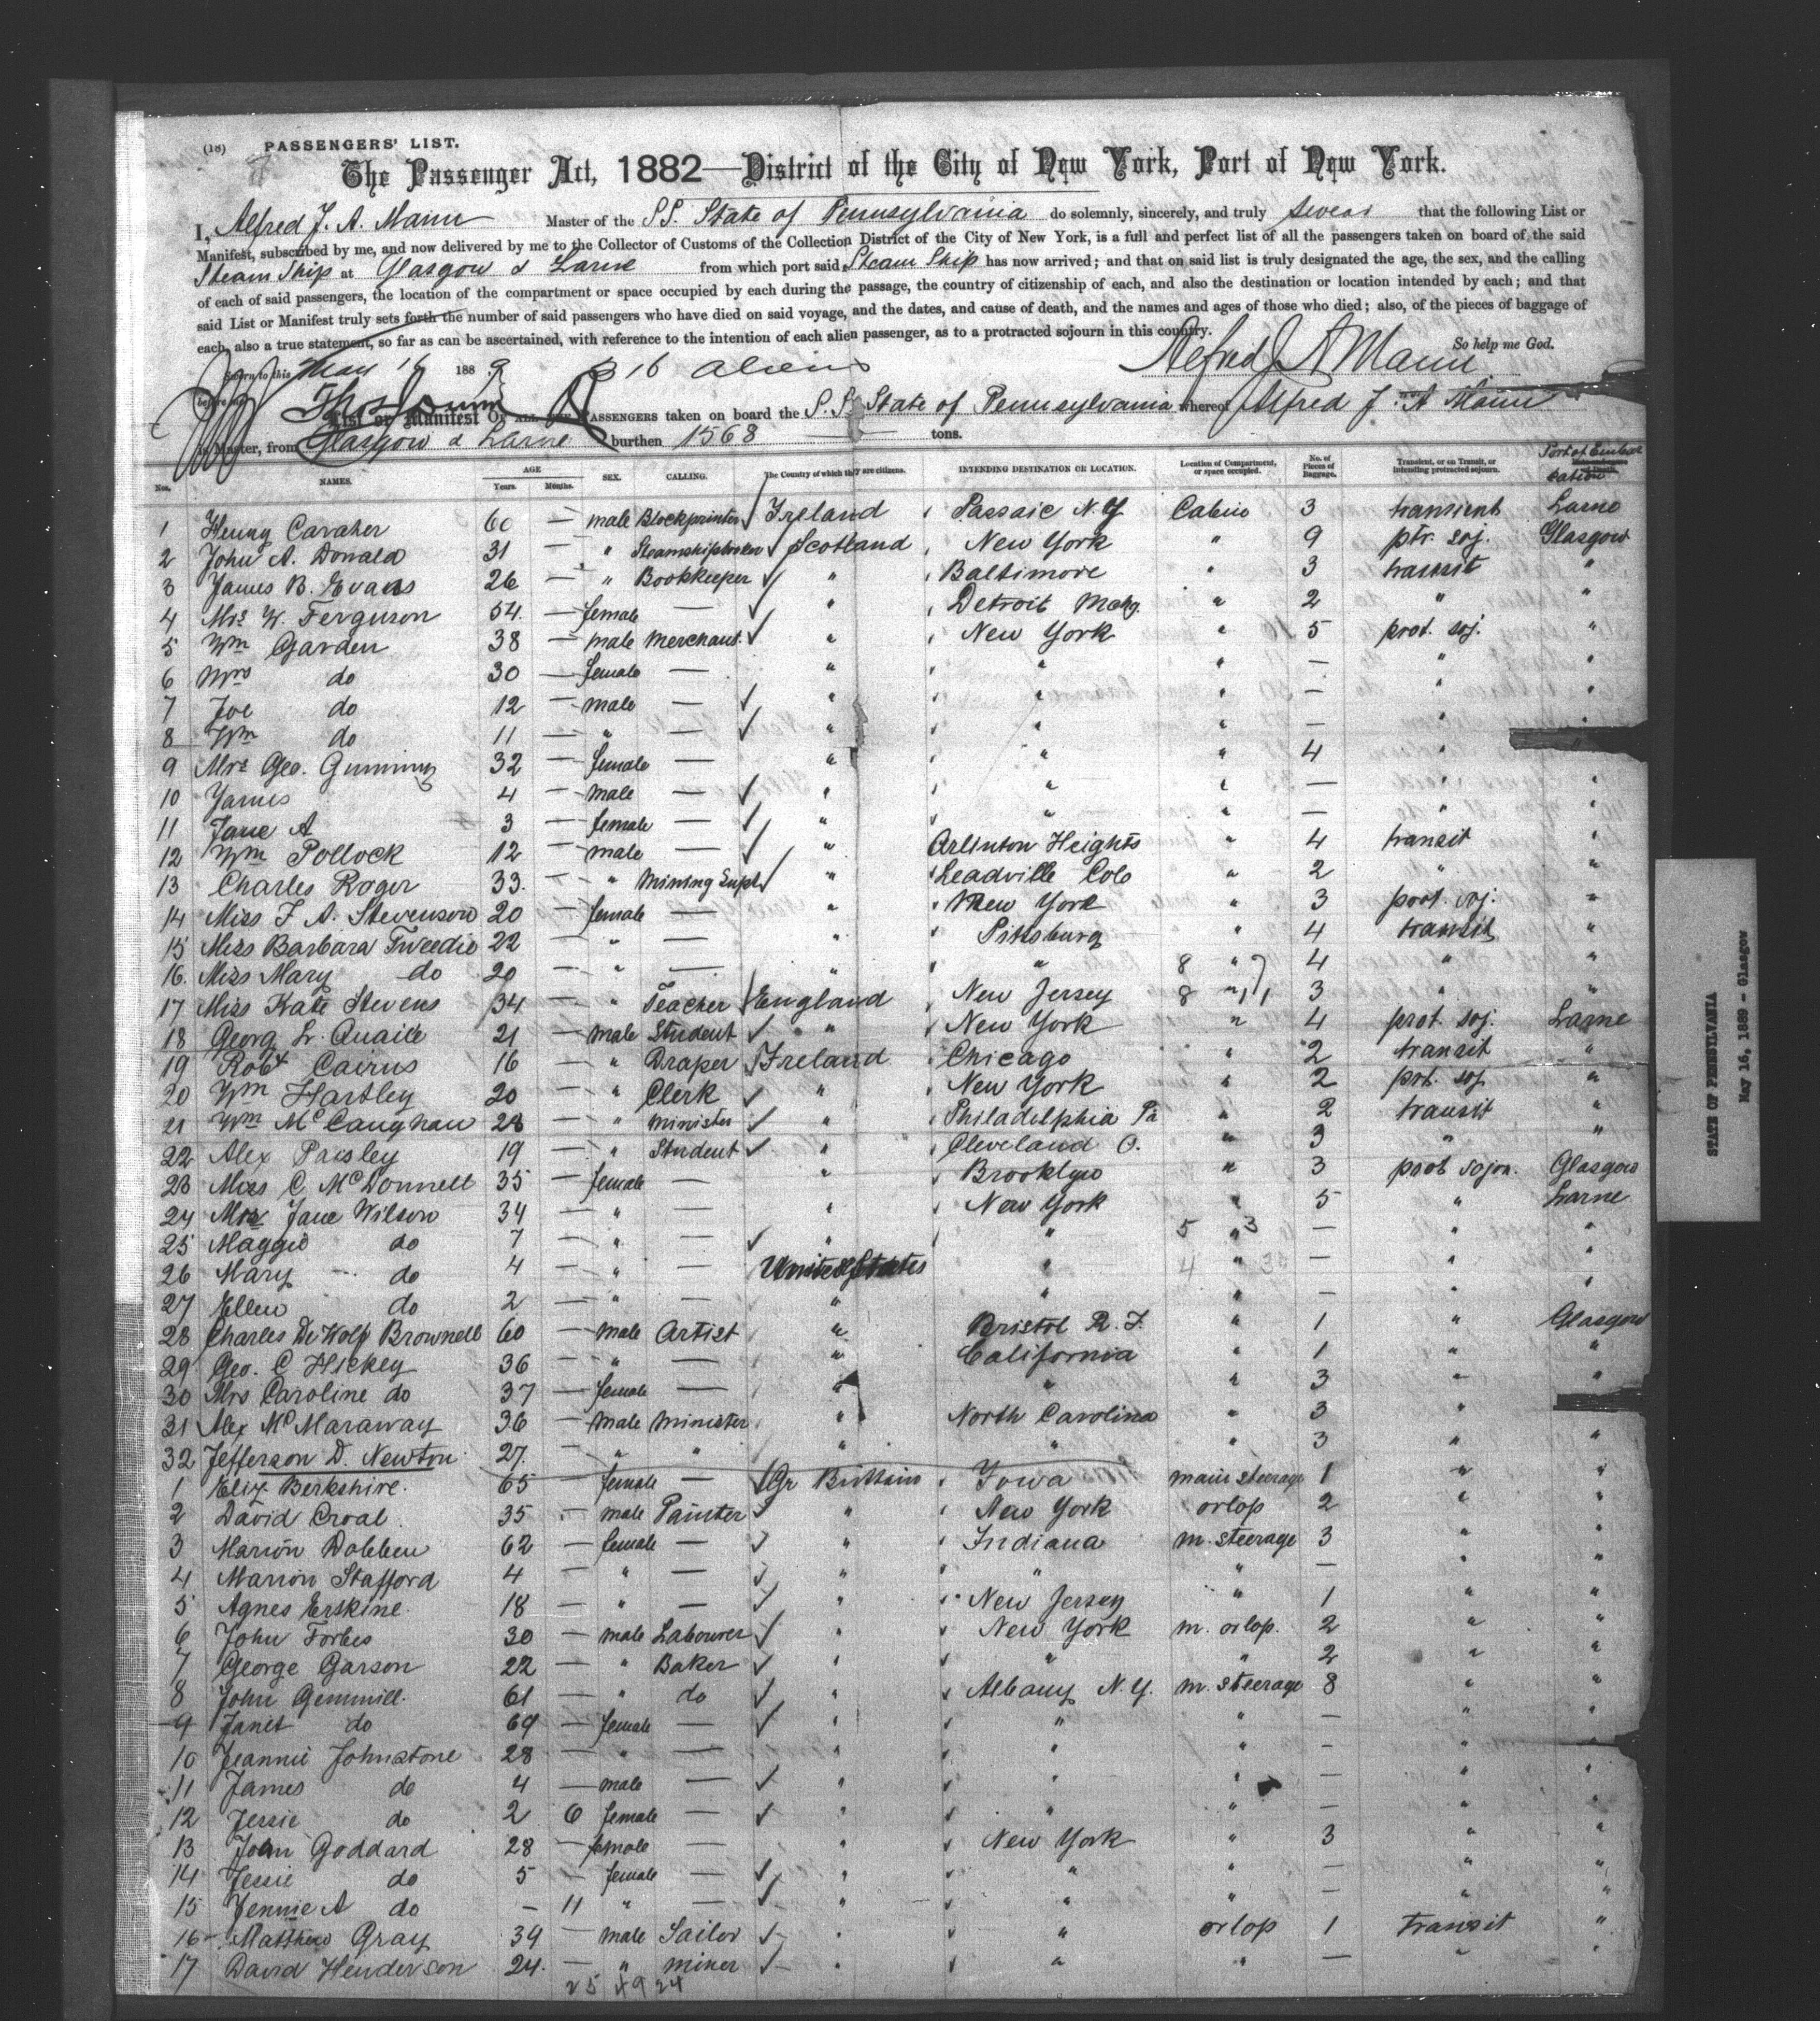 (18) PASSENGERS' LIST.
The Passenger Act, 1882—District of the City of New York, Port of New York.
I, Alfred J. A. Mann Master of the S.S. State of Pennsylvania do solemnly, sincerely, and truly swear that the following List or
Manifest, subscribed by me, and now delivered by me to the Collector of Customs of the Collection District of the City of New York, is a full and perfect list of all the passengers taken on board of the said
Steam Ship at Glasgow & Larne from which port said Steam Ship has now arrived; and that on said list is truly designated the age, the sex, and the calling
of each of said passengers, the location of the compartment or space occupied by each during the passage, the country of citizenship of each, and also the destination or location intended by each; and that
said List or Manifest truly sets forth the number of said passengers who have died on said voyage, and the dates, and cause of death, and the names and ages of those who died; also, of the pieces of baggage of
each, also a true statement, so far as can be ascertained, with reference to the intention of each alien passenger, as to a protracted sojourn in this country.
So help me God.
Sworn to this May 16 1889 316 aliens Alfred J A Mann
before me
List or Manifest OF ALL THE PASSENGERS taken on board the S.S. State of Pennsylvania whereof Alfred J. A Mann
is Master, from Glasgow & Larne burthen 1568 tons.
Nos. NAMES. AGE Years. Months. SEX. CALLING. The Country of which they are citizens. INTENDING DESTINATION OR LOCATION. Location of Compartment, or space occupied. No. of Pieces of Baggage. Transient, or on Transit, or intending protracted sojourn. Port of Embarcation
1 Henry Caraher 60 — male Blockprinter Ireland Passaic N.Y Cabin 3 transient Larne
2 John A. Donald 31 — " Steamshipbroker Scotland New York " 9 ptr. soj. Glasgow
3 James B. Evans 26 — " Bookkeeper " Baltimore " 3 transit "
4 Mrs W. Ferguson 54 — female — " Detroit Mchg. " 2 " "
5 Wm Garden 38 — male merchant " New York " 5 prot. soj. "
6 Mrs do 30 — female — " " " — " "
7 Joe do 12 — male — " " " — " "
8 Wm do 11 — " — " " " — " "
9 Mrs Geo. Gumming 32 — female — " " " 4 " "
10 James 4 — male — " " " — " "
11 Jane A 3 — female — " " " — " "
12 Wm Pollock 12 — male — " Arlinton Heights " 4 transit "
13 Charles Roger 33 — " Mining Supt " Leadville Colo " 2 " "
14 Miss J. A. Stevenson 20 — female — " New York " 3 prot. soj. "
15 Miss Barbara Tweedie 22 — " — " Pittsburg " 4 transit "
16 Miss Mary do 20 — " — " " 8 " 4 " "
17 Miss Kate Stevens 34 — " Teacher England New Jersey 8 " 3 " "
18 Georg L. Quaile 21 — male Student " New York " 4 prot. soj. Larne
19 Robt Cairns 16 — " Draper Ireland Chicago " 2 transit "
20 Wm Hartley 20 — " Clerk " New York " 2 prt. soj "
21 Wm McCaughan 28 — " minister " Philadelphia Pa " 2 transit "
22 Alex Paisley 19 — " Student " Cleveland O. " 3 " "
23 Miss C McDonnell 35 — female — " Brooklyn " 3 prot sojon. Glasgow
24 Mrs Jane Wilson 34 — " — " New York " 5 " Larne
25 Maggie do 7 — " — " " 5 " 3 — " "
26 Mary do 4 — " — United States " 4 " — " "
27 Ellen do 2 — " — " " " — " "
28 Charles DeWolf Brownell 60 — male Artist " Bristol R.I. " 1 " Glasgow
29 Geo. C Hickey 36 — " — " California " 1 " "
30 Mrs Caroline do 37 — female — " " " 3 " "
31 Alex McMaraway 36 — male minister " North Carolina " 3 "
32 Jefferson D. Newton 27 — " " " " " 3 " "
1 Eliz Berkshire 65 — female — Gr Brittain Iowa main steerage 1 " "
2 David Croal 35 — male Painter " New York orlop 2 " "
3 Marion Dobben 62 — female — " Indiana m. steerage 3 " "
4 Marion Stafford 4 — " — " " " — " "
5 Agnes Erskine 18 — " — " New Jersey " 1 " "
6 John Forbes 30 — male Labourer " New York m. orlop. 2 " "
7 George Garson 22 — " Baker " " " 2 " "
8 John Gemmill 61 — " do " Albany N.Y. m. steerage 8 " "
9 Janet do 69 — female — " " " — " "
10 Jeannie Johnstone 28 — " — " " " — " "
11 James do 4 — male — " " " — " "
12 Jessie do 2 6 female — " " " — " "
13 Joan Goddard 28 — female " New York " 3 " "
14 Jessie do 5 — female — " " " — " "
15 Jennie A do — 11 " — " " " — " "
16 Matthew Gray 39 — male Sailor " " orlop 1 transit "
17 David Henderson 24 — " miner " " " — " "
25 49 24
STATE OF PENNSILVANIA
May 16, 1889 - Glasgow